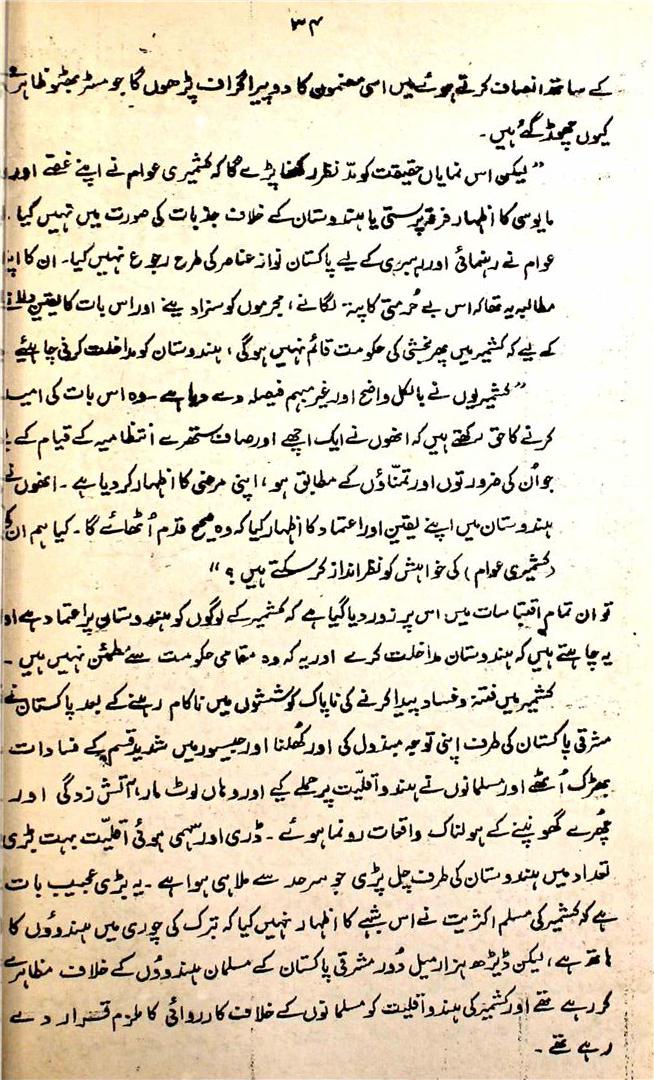 ۳۴
کے ساتھ انصاف کرتے ہوئے میں اسی مضمون کا دو پیراگراف پڑھوں گا جو مسٹر بھٹو ظاہر ہے
کیوں چھوڑ گئے ہیں۔
”لیکن اس نمایاں حقیقت کو مدّ نظر رکھنا پڑے گا کہ کشمیری عوام نے اپنے غصّے اور
مایوسی کا اظہار فرقہ پرستی یا ہندوستان کے خلاف جذبات کی صورت میں نہیں کیا۔
عوام نے رہنمائی اور رہبری کے لیے پاکستان نواز عناصر کی طرح رجوع نہیں کیا۔ ان کا اپنا
مطالبہ یہ تھا کہ اس بے حُرمتی کا پتہ لگانے، مجرموں کو سزا دینے اور اس بات کا یقین دلانے
کے لیے کہ کشمیر میں پھر بخشی کی حکومت قائم نہیں ہوگی، ہندوستان کو مداخلت کرنی چاہئیے
”کشمیریوں نے بالکل واضح اور غیر مبہم فیصلہ دے دیا ہے۔ وہ اس بات کی امید
کرنے کا حق رکھتے ہیں کہ انھوں نے ایک اچھے اور صاف ستھرے انتظامیہ کے قیام کے لیے
جو اُن کی ضرورتوں اور تمنّاؤں کے مطابق ہو، اپنی مرضی کا اظہار کر دیا ہے۔ انھوں نے
ہندوستان میں اپنے یقین اور اعتماد کا اظہار کیا کہ وہ صحیح قدم اُٹھائے گا۔ کیا ہم ان کی
(کشمیری عوام) کی خواہش کو نظر انداز کر سکتے ہیں؟“
تو ان تمام اقتباسات میں اس پر زور دیا گیا ہے کہ کشمیر کے لوگوں کو ہندوستان پر اعتماد ہے اور
یہ چاہتے ہیں کہ ہندوستان مداخلت کرے اور یہ کہ وہ مقامی حکومت سے مطمئن نہیں ہیں۔
کشمیر میں فتنہ و فساد پیدا کرنے کی ناپاک کوششوں میں ناکام رہنے کے بعد پاکستان نے
مشرقی پاکستان کی طرف اپنی توجہ مبذول کی اور کھُلنا اور جیسور میں شدید قسم کے فسادات
بھڑک اُٹھے اور مسلمانوں نے ہندو اقلیّت پر حملے کیے اور وہاں لوٹ مار، آتش زدگی اور
چھُرے گھونپنے کے ہولناک واقعات رونما ہوئے۔ ڈری اور سہمی ہوئی اقلیّت بہت بڑی
تعداد میں ہندوستان کی طرف چل پڑی جو سرحد سے ملا ہی ہوا ہے۔ یہ بڑی عجیب بات
ہے کہ کشمیر کی مسلم اکثریت نے اس شبہے کا اظہار نہیں کیا کہ تبرک کی چوری میں ہندوؤں کا
ہاتھ ہے، لیکن ڈیڑھ ہزار میل دُور مشرقی پاکستان کے مسلمان ہندوؤں کے خلاف مظاہرے
کر رہے تھے اور کشمیر کی ہندو اقلیت کو مسلمانوں کے خلاف کارروائی کا ملزم قرار دے
رہے تھے۔